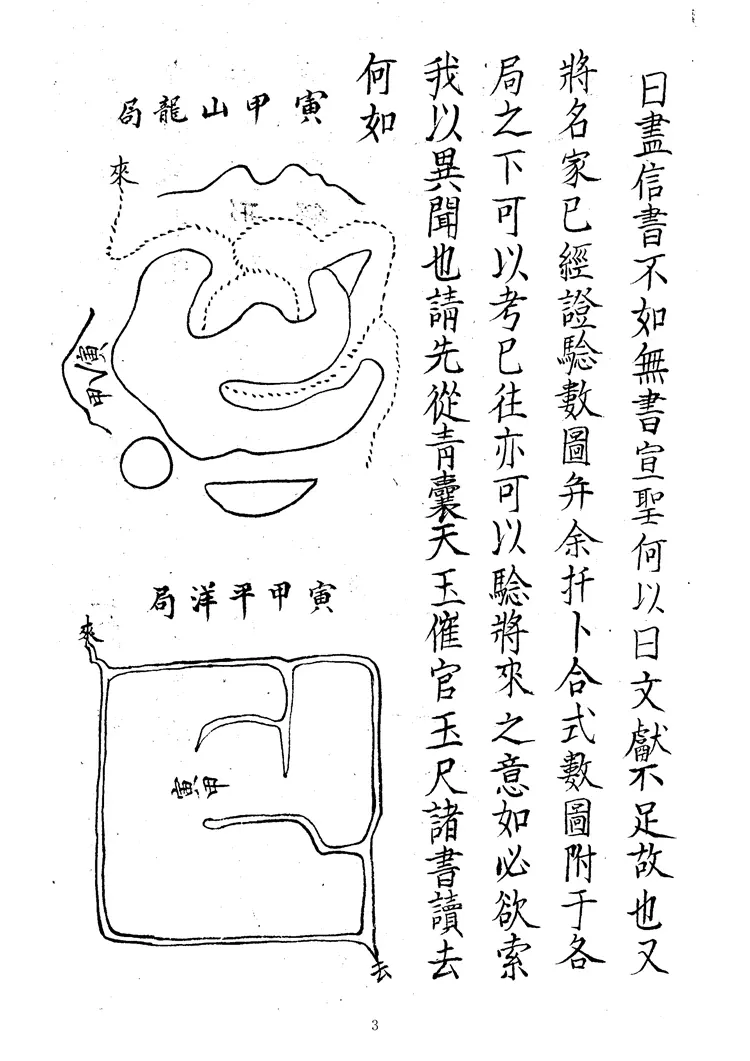 曰盡信書不如無書宣聖何以曰文獻不足故也又
將名家已經證驗數圖弁余扦卜合式數圖附于各
局之下可以考已往亦可以驗將來之意如必欲索
我以異聞也請先從青囊天玉催官玉尺諸書讀去
何如
寅甲山龍局
來
寅
甲
寅甲平洋局
來
甲
寅
去
3